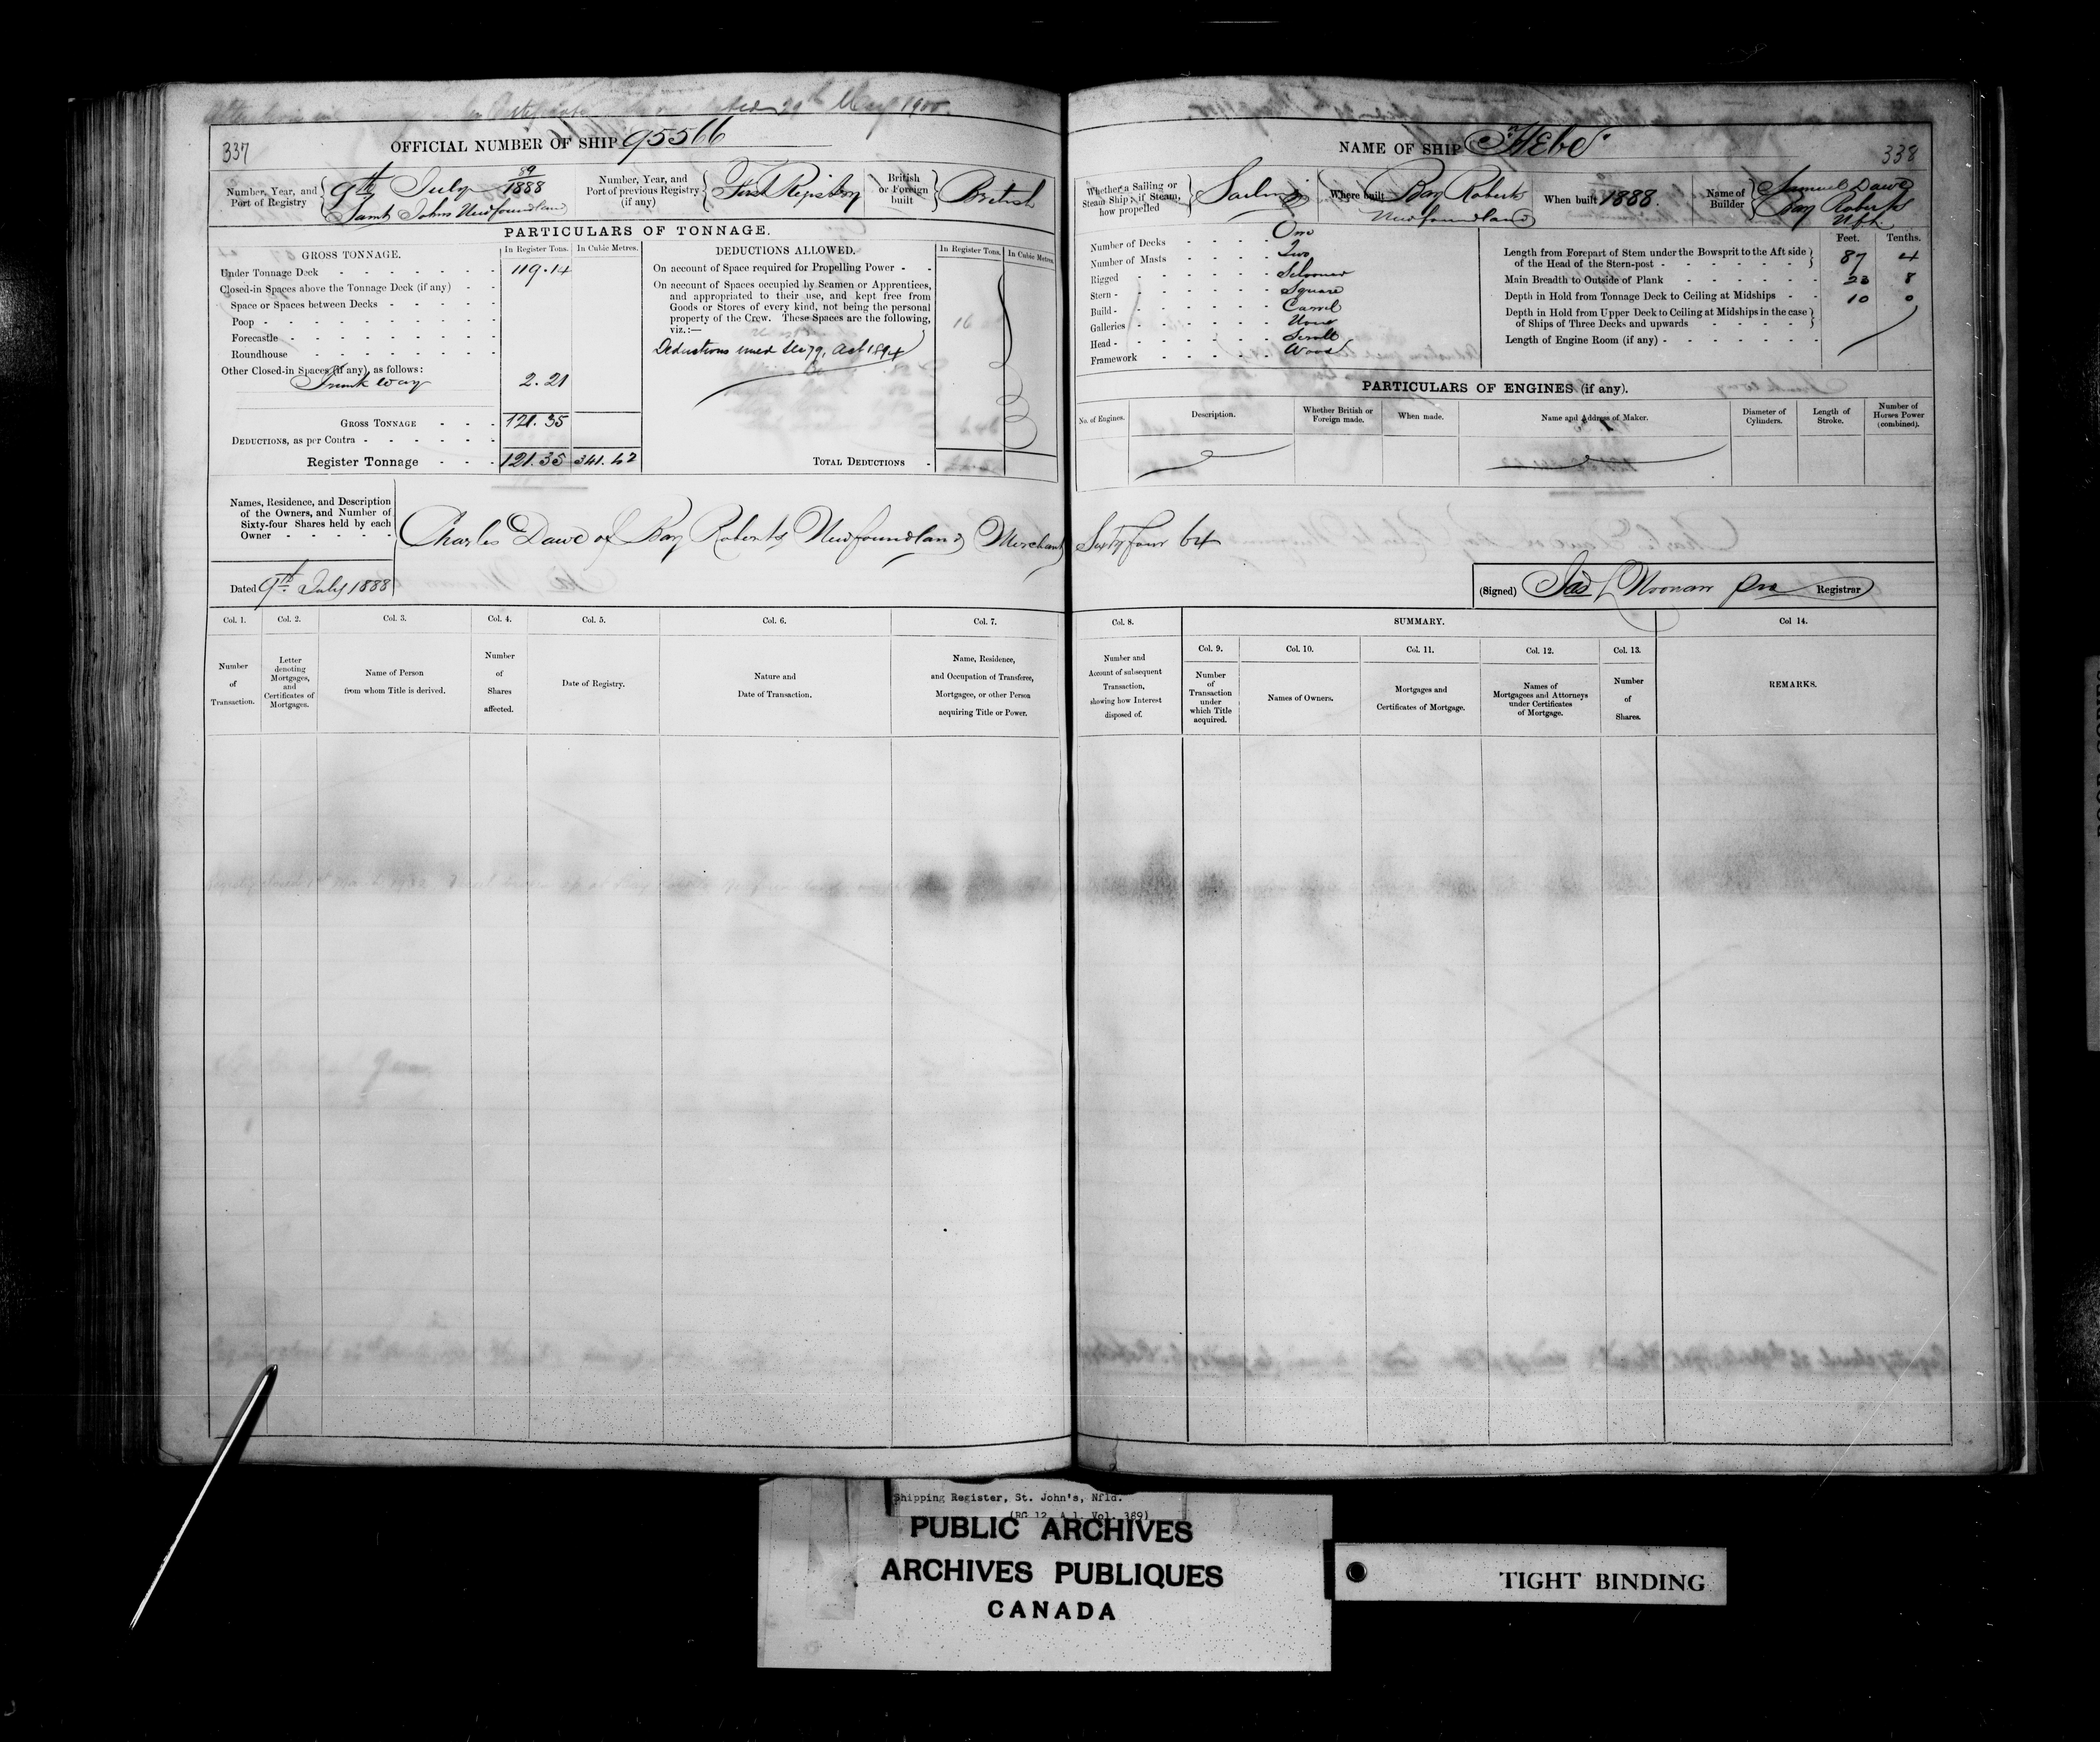 29th May 1900.
337
OFFICIAL NUMBER OF SHIP 95566
Number, Year, and Port of Registry 9th July 89/1888 Saint Johns Newfoundland
Number, Year, and Port of previous Registry (if any) First Registry
British or Foreign built British
PARTICULARS OF TONNAGE.
GROSS TONNAGE. In Register Tons. In Cubic Metres.
Under Tonnage Deck 119.14
Closed-in Spaces above the Tonnage Deck (if any)
Space or Spaces between Decks
Poop
Forecastle
Roundhouse
Other Closed-in Spaces (if any), as follows:
Trunk way 2.21
GROSS TONNAGE 121.35
DEDUCTIONS, as per Contra
Register Tonnage 121.35
DEDUCTIONS ALLOWED. In Register Tons. In Cubic Metres.
On account of Space required for Propelling Power
On account of Spaces occupied by Seamen or Apprentices,
and appropriated to their use, and kept free from
Goods or Stores of every kind, not being the personal
property of the Crew. These Spaces are the following,
viz.:—
Deductions under Sec 79, Act 1894
TOTAL DEDUCTIONS
Names, Residence, and Description
of the Owners, and Number of
Sixty-four Shares held by each
Owner
Charles Dawe of Bay Roberts Newfoundland Merchant Sixty four 64
Dated 9th July 1888
Col. 1. Col. 2. Col. 3. Col. 4. Col. 5. Col. 6. Col. 7.
Number of Transaction.
Letter denoting Mortgages, and Certificates of Mortgages.
Name of Person from whom Title is derived.
Number of Shares affected.
Date of Registry.
Nature and Date of Transaction.
Name, Residence, and Occupation of Transferee, Mortgagee, or other Person acquiring Title or Power.
NAME OF SHIP Hebe
338
Whether a Sailing or Steam Ship; if Steam, how propelled Sailing
Where built Bay Roberts Newfoundland
When built 1888.
Name of Builder Samuel Dawe Bay Roberts
Number of Decks One
Number of Masts Two
Rigged Schooner
Stern Square
Build Carvel
Galleries None
Head Scroll
Framework Wood
Feet. Tenths.
Length from Forepart of Stem under the Bowsprit to the Aft side
of the Head of the Stern-post 87 4
Main Breadth to Outside of Plank 23 8
Depth in Hold from Tonnage Deck to Ceiling at Midships 10 0
Depth in Hold from Upper Deck to Ceiling at Midships in the case
of Ships of Three Decks and upwards
Length of Engine Room (if any)
PARTICULARS OF ENGINES (if any).
No. of Engines. Description. Whether British or Foreign made. When made. Name and Address of Maker. Diameter of Cylinders. Length of Stroke. Number of Horses Power (combined).
(Signed) Jas L Noonan Registrar
Col. 8. SUMMARY. Col 14.
Col. 9. Col. 10. Col. 11. Col. 12. Col. 13.
Number and Account of subsequent Transaction, showing how Interest disposed of.
Number of Transaction under which Title acquired.
Names of Owners.
Mortgages and Certificates of Mortgage.
Names of Mortgagees and Attorneys under Certificates of Mortgage.
Number of Shares.
REMARKS.
Shipping Register, St. John's, Nfld.
(RG 12, A 1, Vol. 389)
PUBLIC ARCHIVES
ARCHIVES PUBLIQUES
CANADA
TIGHT BINDING